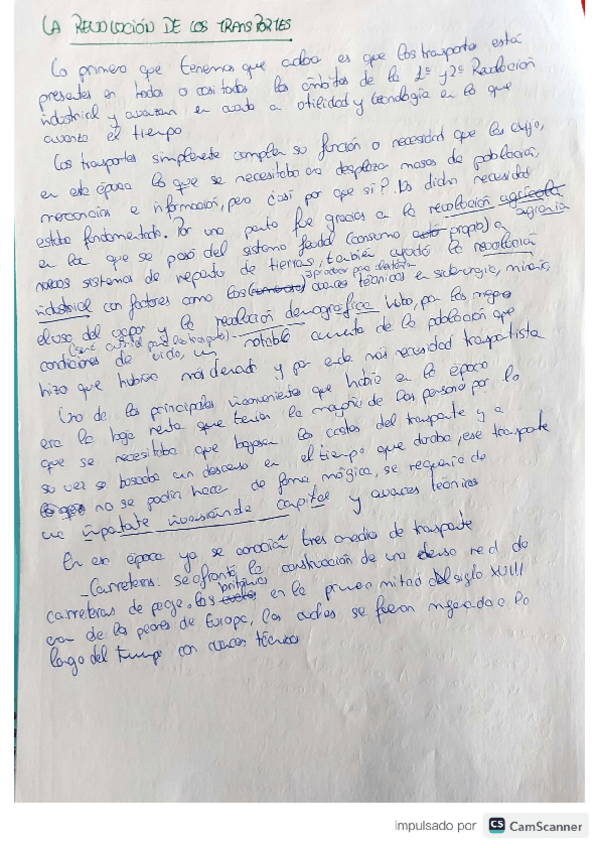 LA REVOLUCIÓN DE LOS TRANSPORTES
Lo primero que tenemos que aclarar es que los transportes está
presentes en todos o casi todos los ámbitos de la 1º y 2º Revolución
industrial y avanzan en cuanto a utilidad y tecnología en lo que
avanza el tiempo
Los trasportes simplemente cumplen su función o necesidad que les exijo,
en esta época lo que se necesitaba era desplazar masas de población,
mercancías e información, pero ¿casi por que si? Es dicha necesidad
estaba fundamentada. Por una parte fue gracias a la revolución agrícola agraria
en la que se pasó del sistema feudal (consumo auto propio) a
nuevos sistema de reparto de tierras, también ayudó la revolución
industrial con factores como los avances técnicos en siderurgia, minería,
el uso del vapor y la revolución demográfica hubo, por las mejores
condiciones de vida, un notable aumento de la población que
hizo que hubiera más demanda y por ende más necesidad trasportista
Uno de los principales inconveniente que había en la época
era la baja renta que tenían la mayoría de las personas por lo
que se necesitaba que bajasen los costes del trasporte y a
su vez se buscaba un descenso en el tiempo que duraba, ese trasporte
no se podía hacer de forma mágica, se requería de
una importante inversión de capital y avances técnicos
En esa época ya se conocían tres medios de trasporte
- Carreteras: se afrontó la construcción de una densa red de
carreteras de peaje. Los británicos en la primera mitad del siglo XVIII
eran de las peores de Europa, los coches se fueron mejorando a lo
largo del tiempo con avances técnicos
impulsado por CS CamScanner